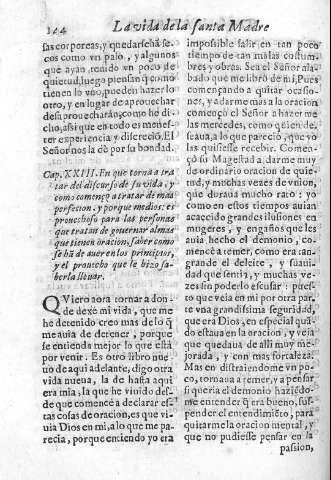 124
La vida de la santa Madre
sas corporeas, y quedarseha se
cos como vn palo, y algunos
que ayan tenido vn poco de
quietud, luego piensan q̃ como
tienen lo vno, pueden hazer lo
otro, y en lugar de aprouechar
desaprouecharàn, como he di-
cho, assi que en todo es menes-
ter experiencia y discreciõ. El
Señor nos la dè por su bondad.
Cap. XXIII. En que torna a tra
tar del discurso de su vida, y
como començò a tratar de mas
perfecion, y porque medios: es
prouechoso para las personas
que tratan de gouernar almas
que tienen oracion, saber como
se hã de auer en los principios,
y el prouecho que le hizo sa-
berla lleuar.
QViero aora tornar a don-
de dexè mi vida, que me
he detenido creo mas de lo q̃
me auia de detener, porque
se entienda mejor lo que està
por venir. Es otro libro nue-
uo de aqui adelante, digo otra
vida nueua, la de hasta aqui
era mia; la que he viuido des-
de que comencè a declarar es-
tas cosas de oracion, es que vi-
uia Dios en mi, a lo que me pa-
recia, porque entiendo yo era
impossible salir en tan poco
tiempo de tan malas costum-
bres, y obras. Sea el Señor ala-
bado que me librò de mi. Pues
començando a quitar ocasio-
nes, y a darme mas a la oracion
començò el Señor a hazerme
las mercedes, como quien de-
seaua, a lo que pareciò, que yo
las quisiesse recebir. Comen-
çò su Magestad a darme muy
de ordinario oracion de quie-
tud, y muchas vezes de vnion,
que duraua mucho rato: yo
como en estos tiempos auian
acaecido grandes ilusiones en
mugeres, y engaños que les
auia hecho el demonio, co-
mencè a temer, como era tan
grande el deleite, y suaui-
dad que sentia, y muchas ve-
zes sin poderlo escusar: pues-
to que veia en mi por otra par
te vna grandissima seguridad,
que era Dios, en especial quã-
do estaua en la oracion, y veia
que quedaua de alli muy me-
jorada, y con mas fortaleza.
Mas en distraiendome vn po-
co, tornaua a temer, y a pensar
si queria el demonio haziẽdo-
me entender q̃ era bueno, sus-
pender el entendimiẽto, para
quitarme la oracion mental, y
que no pudiesse pensar en la
passion,